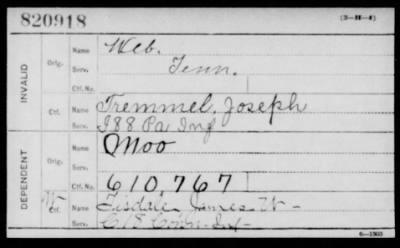 820918
(3-H-4)
INVALID
Orig.
Name
Web.
Serv.
Tenn.
Ctf. No.
Ctf.
Name
Tremmel, Joseph
Serv.
I 88 Pa Inf
DEPENDENT
Orig.
Name
Moo
Serv.
Ctf. No.
610,767
W
Ctf.
Name
Tisdale James W -
Serv.
C 18 Conn Inf -
6-1303